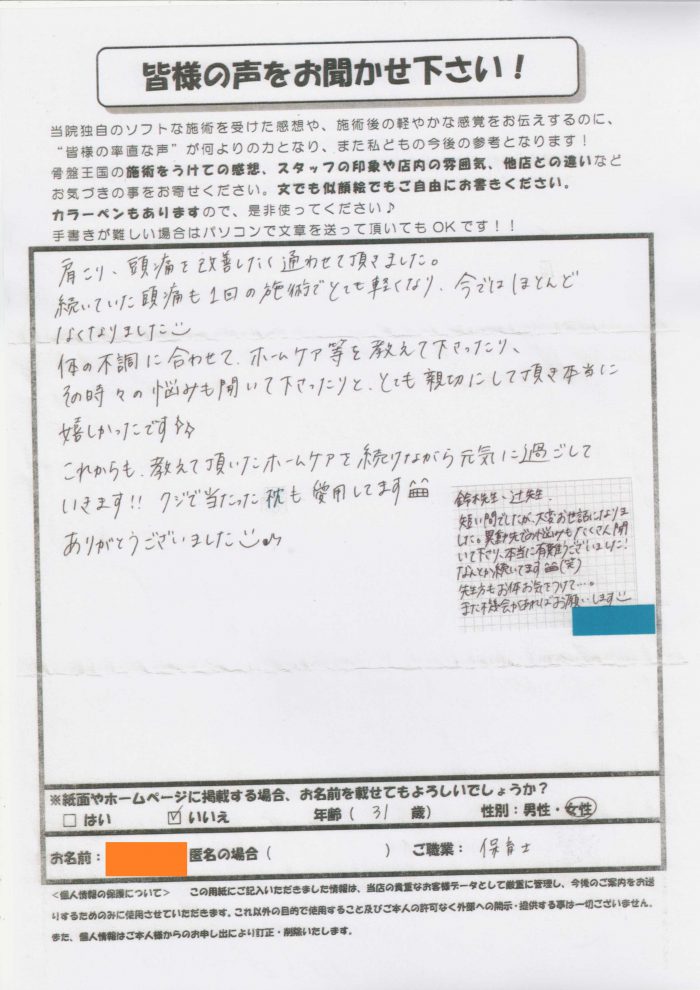 皆様の声をお聞かせ下さい！
当院独自のソフトな施術を受けた感想や、施術後の軽やかな感覚をお伝えするのに、
“皆様の率直な声”が何よりの力となり、また私どもの今後の参考となります！
骨盤王国の施術をうけての感想、スタッフの印象や店内の雰囲気、他店との違いなど
お気づきの事をお寄せください。文でも似顔絵でもご自由にお書きください。
カラーペンもありますので、是非使ってください♪
手書きが難しい場合はパソコンで文章を送って頂いてもOKです！！
肩こり、頭痛を改善したく通わせて頂きました。
続いていた頭痛も1回の施術でとても軽くなり、今ではほとんど
なくなりました
体の不調に合わせて、ホームケア等を教えて下さったり、
その時々の悩みも聞いて下さったりと、とても親切にして頂き本当に
嬉しかったです
これからも、教えて頂いたホームケアを続けながら元気に過ごして
いきます!! クジで当たった枕も愛用してます
ありがとうございました♪
鈴木先生、辻先生、
短い間でしたが、大変お世話になりま
した。異動先での悩みもたくさん聞
いて下さり、本当に有難うございました！
なんとか続いてます(笑)
先生方もお体お気をつけて…。
また機会があればお願いします
※紙面やホームページに掲載する場合、お名前を載せてもよろしいでしょうか？
□ はい ☑ いいえ 年齢（ 31 歳） 性別：男性・女性
お名前： 匿名の場合（ ） ご職業： 保育士
＜個人情報の保護について＞ この用紙にご記入いただきました情報は、当店の貴重なお客様データとして厳重に管理し、今後のご案内をお送
りするためのみに使用させていただきます。これ以外の目的で使用すること及びご本人の許可なく外部への開示・提供する事は一切ございません。
また、個人情報はご本人様からのお申し出により訂正・削除いたします。